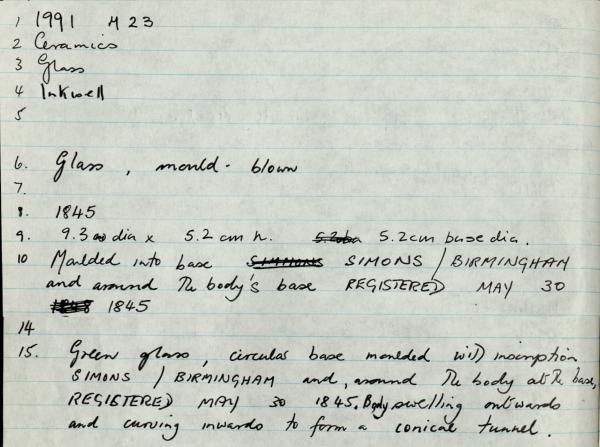 1 1991 M 23
2 Ceramics
3 Glass
4 Inkwell
5
6. Glass, mould-blown
7.
8. 1845
9. 9.3 dia x 5.2 cm h. 5.2cm base dia.
10 Moulded into base SIMONS / BIRMINGHAM
and around the body's base REGISTERED MAY 30
1845
14
15. Green glass, circular base moulded with inscription
SIMONS / BIRMINGHAM and, around the body at the base,
REGISTERED MAY 30 1845. Body swelling outwards
and curving inwards to form a conical tunnel.